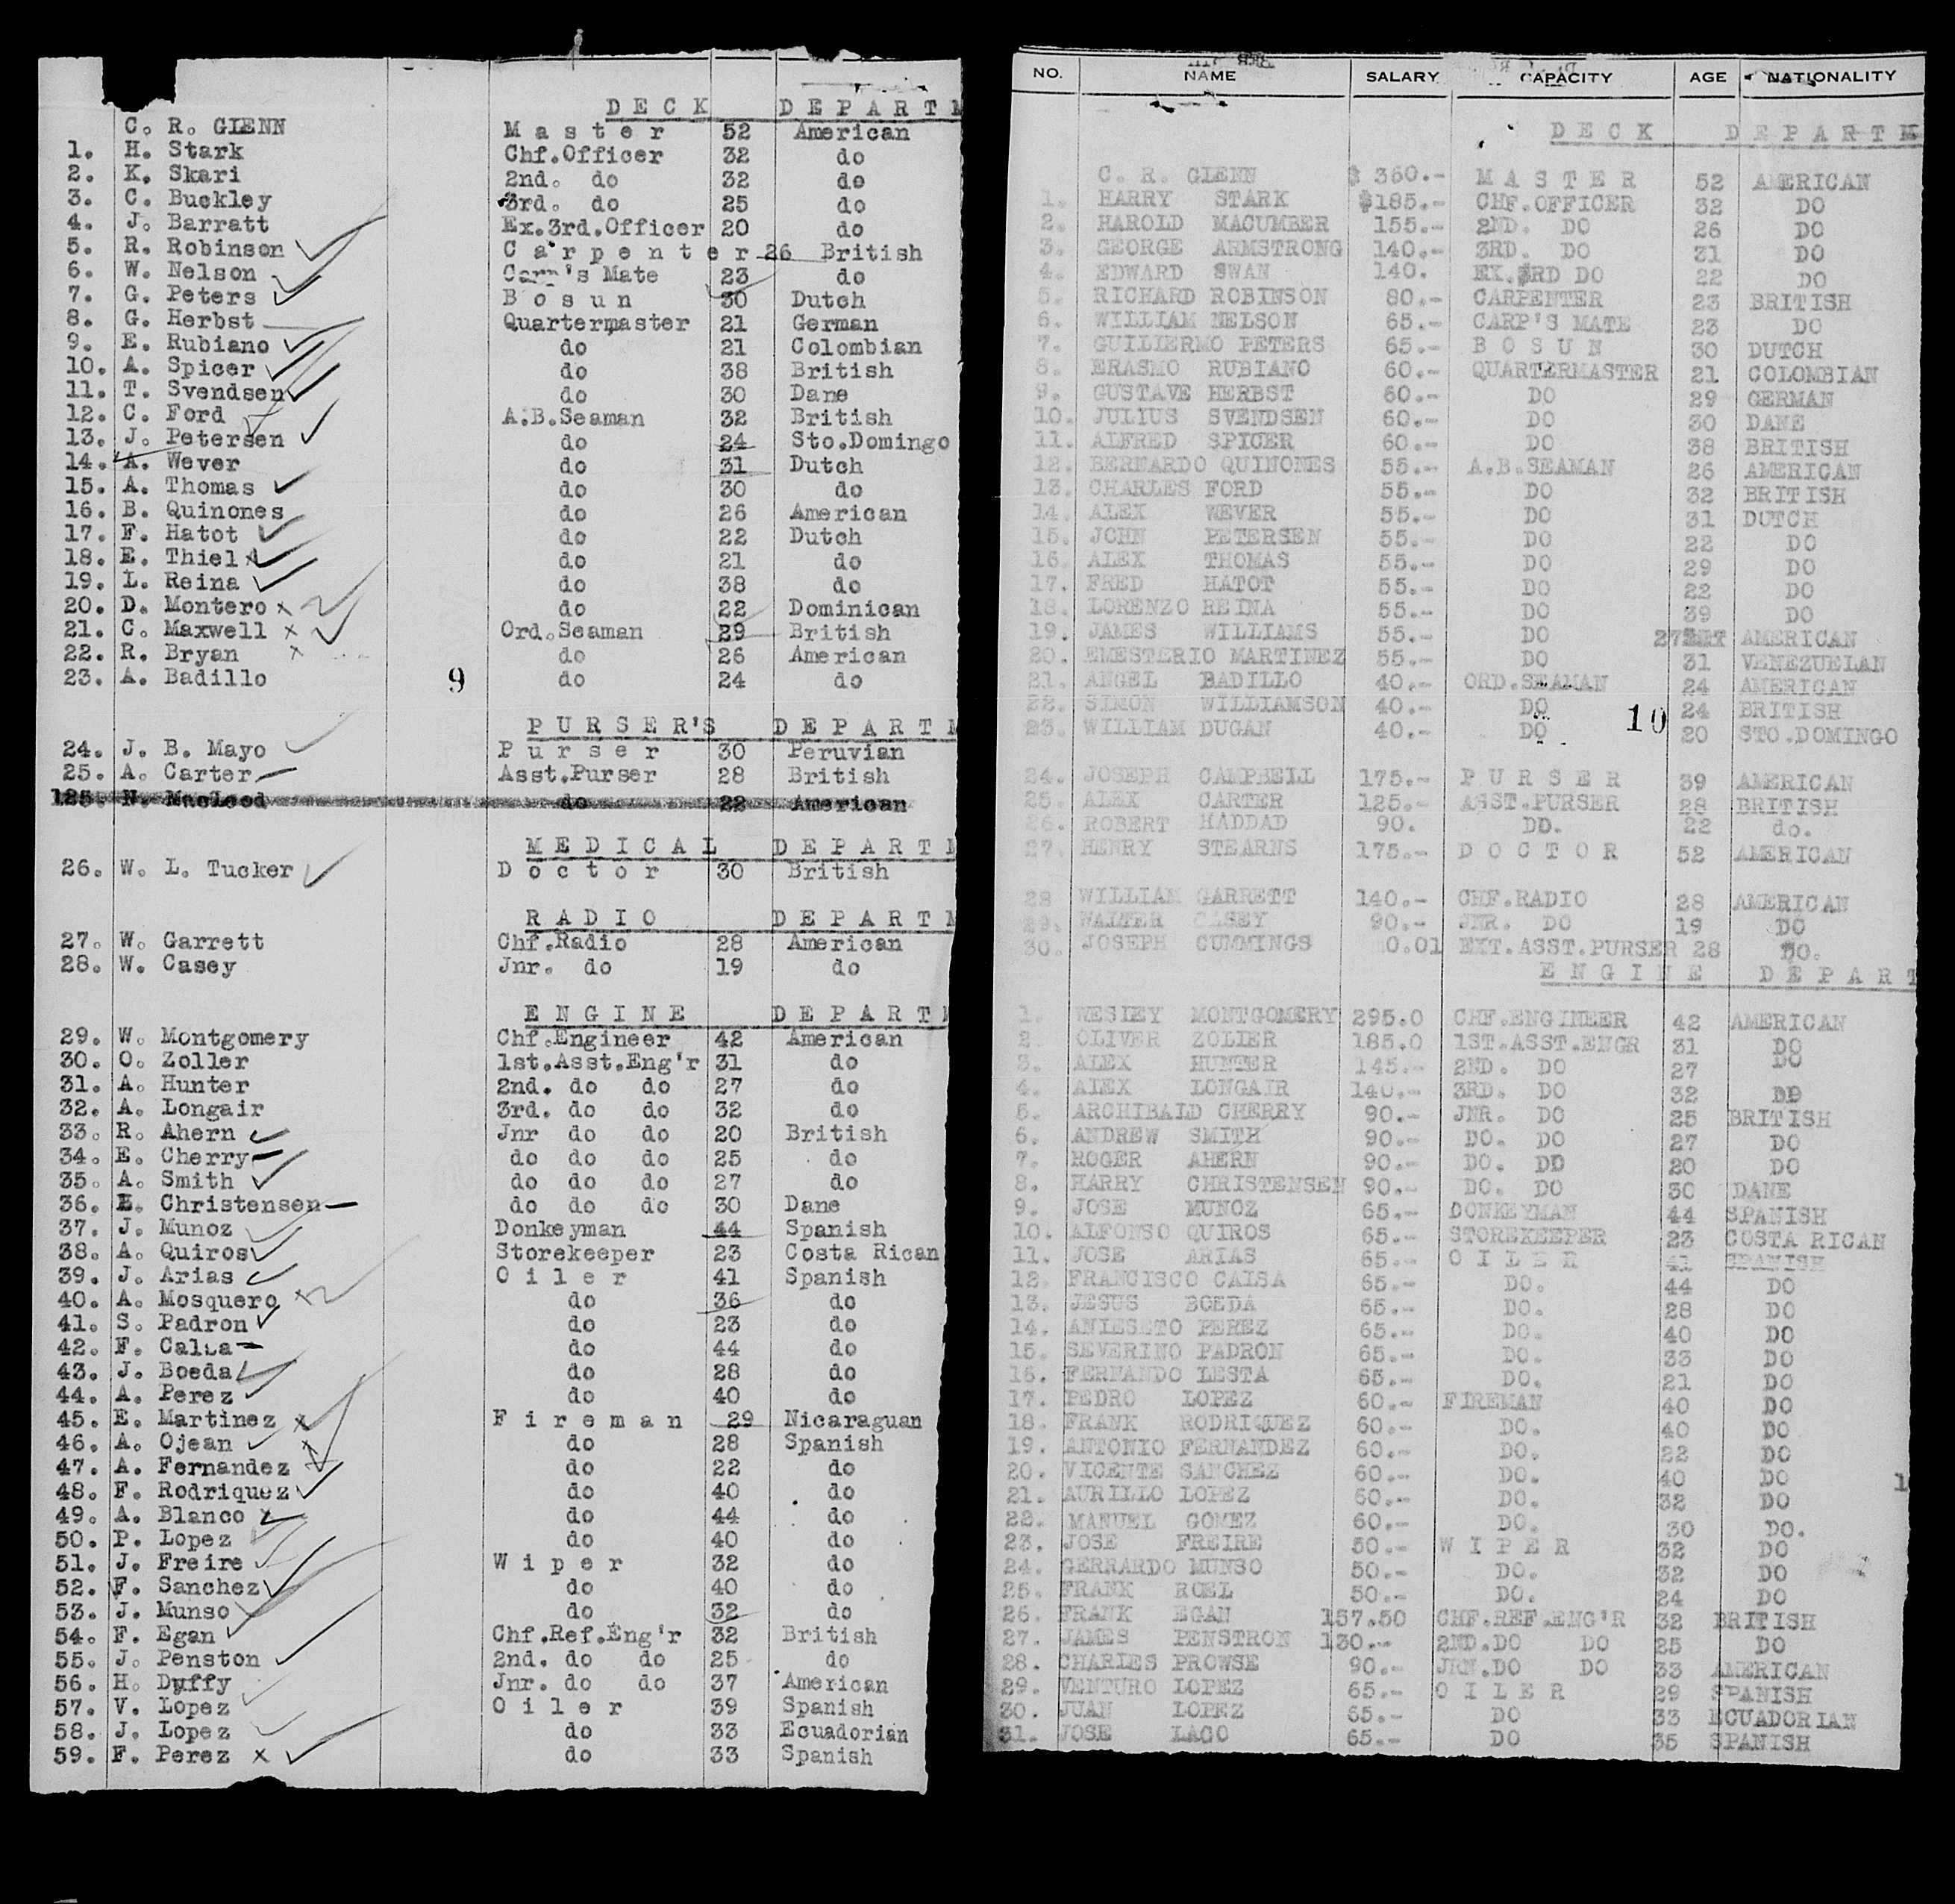 DECK DEPARTM
C. R. GLENN Master 52 American
1. H. Stark Chf.Officer 32 do
2. K. Skari 2nd. do 32 do
3. C. Buckley 3rd. do 25 do
4. J. Barratt Ex.3rd.Officer 20 do
5. R. Robinson Carpenter 26 British
6. W. Nelson Carp's Mate 23 do
7. G. Peters Bosun 30 Dutch
8. G. Herbst Quartermaster 21 German
9. E. Rubiano do 21 Colombian
10. A. Spicer do 38 British
11. T. Svendsen do 30 Dane
12. C. Ford A.B.Seaman 32 British
13. J. Petersen do 24 Sto.Domingo
14. A. Wever do 31 Dutch
15. A. Thomas do 30 do
16. B. Quinones do 26 American
17. F. Hatot do 22 Dutch
18. E. Thiel do 21 do
19. L. Reina do 38 do
20. D. Montero x do 22 Dominican
21. C. Maxwell x Ord.Seaman 29 British
22. R. Bryan x do 26 American
23. A. Badillo 9 do 24 do
PURSER'S DEPARTM
24. J. B. Mayo Purser 30 Peruvian
25. A. Carter Asst.Purser 28 British
125. N. MacLeod do 22 American
MEDICAL DEPARTM
26. W. L. Tucker Doctor 30 British
RADIO DEPARTM
27. W. Garrett Chf.Radio 28 American
28. W. Casey Jnr. do 19 do
ENGINE DEPARTM
29. W. Montgomery Chf.Engineer 42 American
30. O. Zoller 1st.Asst.Eng'r 31 do
31. A. Hunter 2nd. do do 27 do
32. A. Longair 3rd. do do 32 do
33. R. Ahern Jnr do do 20 British
34. E. Cherry do do do 25 do
35. A. Smith do do do 27 do
36. E. Christensen do do do 30 Dane
37. J. Munoz Donkeyman 44 Spanish
38. A. Quiros Storekeeper 23 Costa Rican
39. J. Arias Oiler 41 Spanish
40. A. Mosquero x do 36 do
41. S. Padron do 23 do
42. F. Calsa do 44 do
43. J. Boeda do 28 do
44. A. Perez do 40 do
45. E. Martinez x Fireman 29 Nicaraguan
46. A. Ojean do 28 Spanish
47. A. Fernandez do 22 do
48. F. Rodriquez do 40 do
49. A. Blanco x do 44 do
50. P. Lopez do 40 do
51. J. Freire Wiper 32 do
52. F. Sanchez do 40 do
53. J. Munso do 32 do
54. F. Egan Chf.Ref.Eng'r 32 British
55. J. Penston 2nd. do do 25 do
56. H. Duffy Jnr. do do 37 American
57. V. Lopez Oiler 39 Spanish
58. J. Lopez do 33 Ecuadorian
59. F. Perez x do 33 Spanish
NO. NAME SALARY CAPACITY AGE NATIONALITY
DECK DEPARTM
C. R. GLENN $ 360.- MASTER 52 AMERICAN
1. HARRY STARK $185.- CHF.OFFICER 32 DO
2. HAROLD MACUMBER 155.- 2ND. DO 26 DO
3. GEORGE ARMSTRONG 140.- 3RD. DO 31 DO
4. EDWARD SWAN 140. EX.3RD DO 22 DO
5. RICHARD ROBINSON 80.- CARPENTER 23 BRITISH
6. WILLIAM NELSON 65.- CARP'S MATE 23 DO
7. GUILIERMO PETERS 65.- BOSUN 30 DUTCH
8. ERASMO RUBIANO 60.- QUARTERMASTER 21 COLOMBIAN
9. GUSTAVE HERBST 60.- DO 29 GERMAN
10. JULIUS SVENDSEN 60.- DO 30 DANE
11. ALFRED SPICER 60.- DO 38 BRITISH
12. BERNARDO QUINONES 55.- A.B.SEAMAN 26 AMERICAN
13. CHARLES FORD 55.- DO 32 BRITISH
14. ALEX WEVER 55.- DO 31 DUTCH
15. JOHN PETERSEN 55.- DO 22 DO
16. ALEX THOMAS 55.- DO 29 DO
17. FRED HATOT 55.- DO 22 DO
18. LORENZO REINA 55.- DO 39 DO
19. JAMES WILLIAMS 55.- DO 27 AMERICAN
20. EMESTERIO MARTINEZ 55.- DO 31 VENEZUELAN
21. ANGEL BADILLO 40.- ORD.SEAMAN 24 AMERICAN
22. SIMON WILLIAMSON 40.- DO 24 BRITISH
23. WILLIAM DUGAN 40.- DO 10 20 STO.DOMINGO
24. JOSEPH CAMPBELL 175.- PURSER 39 AMERICAN
25. ALEX CARTER 125.- ASST.PURSER 28 BRITISH
26. ROBERT HADDAD 90. DD. 22 do.
27. HENRY STEARNS 175.- DOCTOR 52 AMERICAN
28 WILLIAM GARRETT 140.- CHF.RADIO 28 AMERICAN
29. WALTER CASEY 90.- JNR. DO 19 DO
30. JOSEPH CUMMINGS 0.01 EXT.ASST.PURSER 28 DO.
ENGINE DEPART
1. WESLEY MONTGOMERY 295.0 CHF.ENGINEER 42 AMERICAN
2. OLIVER ZOLIER 185.0 1ST.ASST.ENGR 31 DO
3. ALEX HUNTER 145.- 2ND. DO 27 DO
4. ALEX LONGAIR 140.- 3RD. DO 32 DD
5. ARCHIBALD CHERRY 90.- JNR. DO 25 BRITISH
6. ANDREW SMITH 90.- DO. DO 27 DO
7. ROGER AHERN 90.- DO. DD 20 DO
8. HARRY CHRISTENSEN 90.- DO. DO 30 DANE
9. JOSE MUNOZ 65.- DONKEYMAN 44 SPANISH
10. ALFONSO QUIROS 65.- STOREKEEPER 23 COSTA RICAN
11. JOSE ARIAS 65.- OILER 41 SPANISH
12. FRANCISCO CALSA 65.- DO. 44 DO
13. JESUS BOEDA 65.- DO. 28 DO
14. ANIESETO PEREZ 65.- DO. 40 DO
15. SEVERINO PADRON 65.- DO. 33 DO
16. FERNANDO LESTA 65.- DO. 21 DO
17. PEDRO LOPEZ 60.- FIREMAN 40 DO
18. FRANK RODRIQUEZ 60.- DO. 40 DO
19. ANTONIO FERNANDEZ 60.- DO. 22 DO
20. VICENTE SANCHEZ 60.- DO. 40 DO
21. AURILLO LOPEZ 60.- DO. 32 DO
22. MANUEL GOMEZ 60.- DO. 30 DO.
23. JOSE FREIRE 50.- WIPER 32 DO
24. GERRARDO MUNSO 50.- DO. 32 DO
25. FRANK ROEL 50.- DO. 24 DO
26. FRANK EGAN 157.50 CHF.REF.ENG'R 32 BRITISH
27. JAMES PENSTRON 130.- 2ND.DO DO 25 DO
28. CHARLES PROWSE 90.- JRN.DO DO 33 AMERICAN
29. VENTURO LOPEZ 65.- OILER 29 SPANISH
30. JUAN LOPEZ 65.- DO 33 ECUADORIAN
31. JOSE LAGO 65.- DO 35 SPANISH